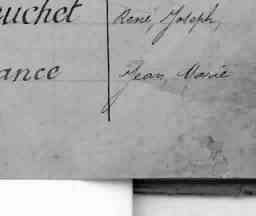 euchet René, Joseph,
ance Jean, Marie